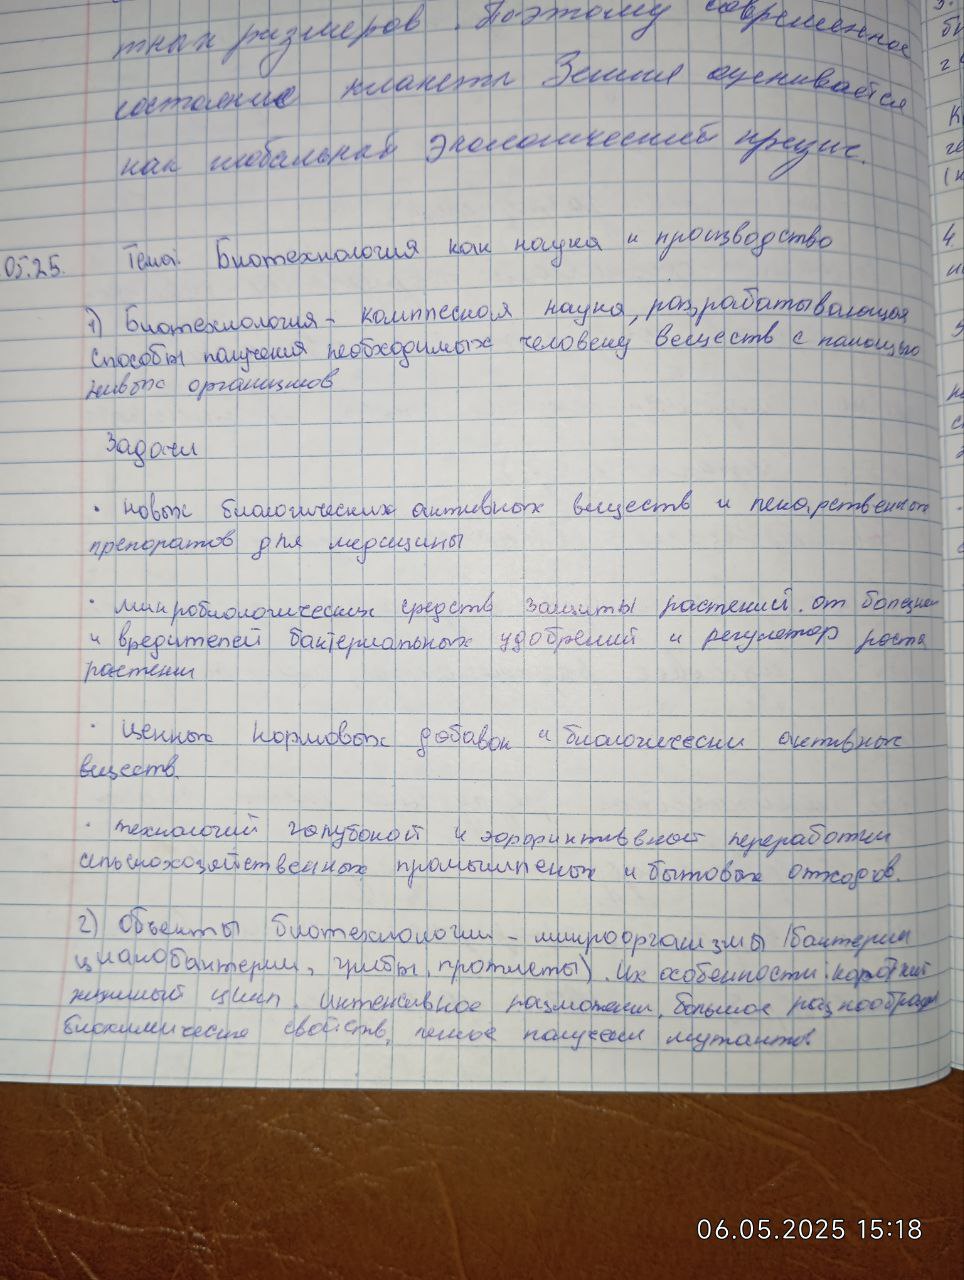 тных размеров. Поэтому современное
состояние планеты Земля оценивается
как глобальный экологический кризис.
05.25. Тема: Биотехнология как наука и производство
1) Биотехнология - комплесная наука, разрабатывающая
способы получения необходимых человеку веществ с помощью
живых организмов
Задачи
· новых биологических активных веществ и лекарственных
препоратов для медецины
· микробиологических средств защиты растений от болезней
и вредителей бактериальных удобрений и регулятор роста
растении
· ценных кормовых добавок и биологически активных
веществ.
· технологий глубокой и эффиктивной переработки
сельскохозяйственных промышленых и бытовых отходов.
2) Объекты биотехнологии - микроорганизмы (бактерии
цианобактерии, грибы, протисты). Их особенности: короткий
жизненный цикл. Интенсивное размножени, большое разнообраз
биохимические свойств, легкое получени мутантов
06.05.2025 15:18